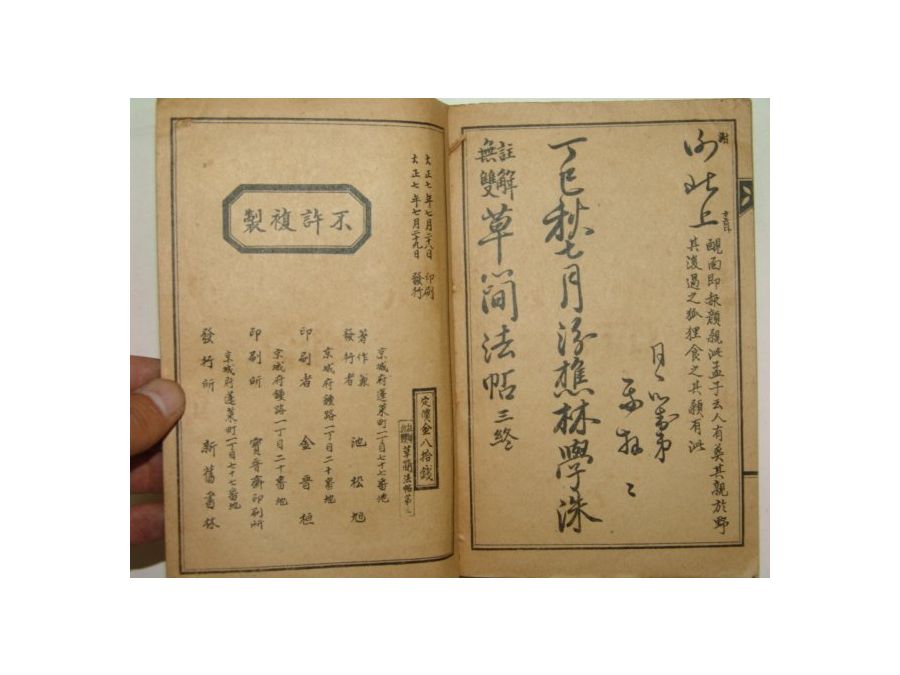 謝
不許複製
大正七年七月二十八日 印刷
大正七年七月二十九日 發行
定價金八拾錢
草簡法帖
京城府蓬萊町一丁目七十七番地
著作兼
發行者 池松旭
京城府鍾路一丁目二十番地
印刷者 金晋桓
京城府鍾路一丁目二十番地
印刷所 寶晋齋印刷所
京城府蓬萊町一丁目七十七番地
發行所 新舊書林
上
其後過之狐狸食之其顙有泚
丁巳秋七月 樵林學洙
註解
無雙
草簡法帖 三終